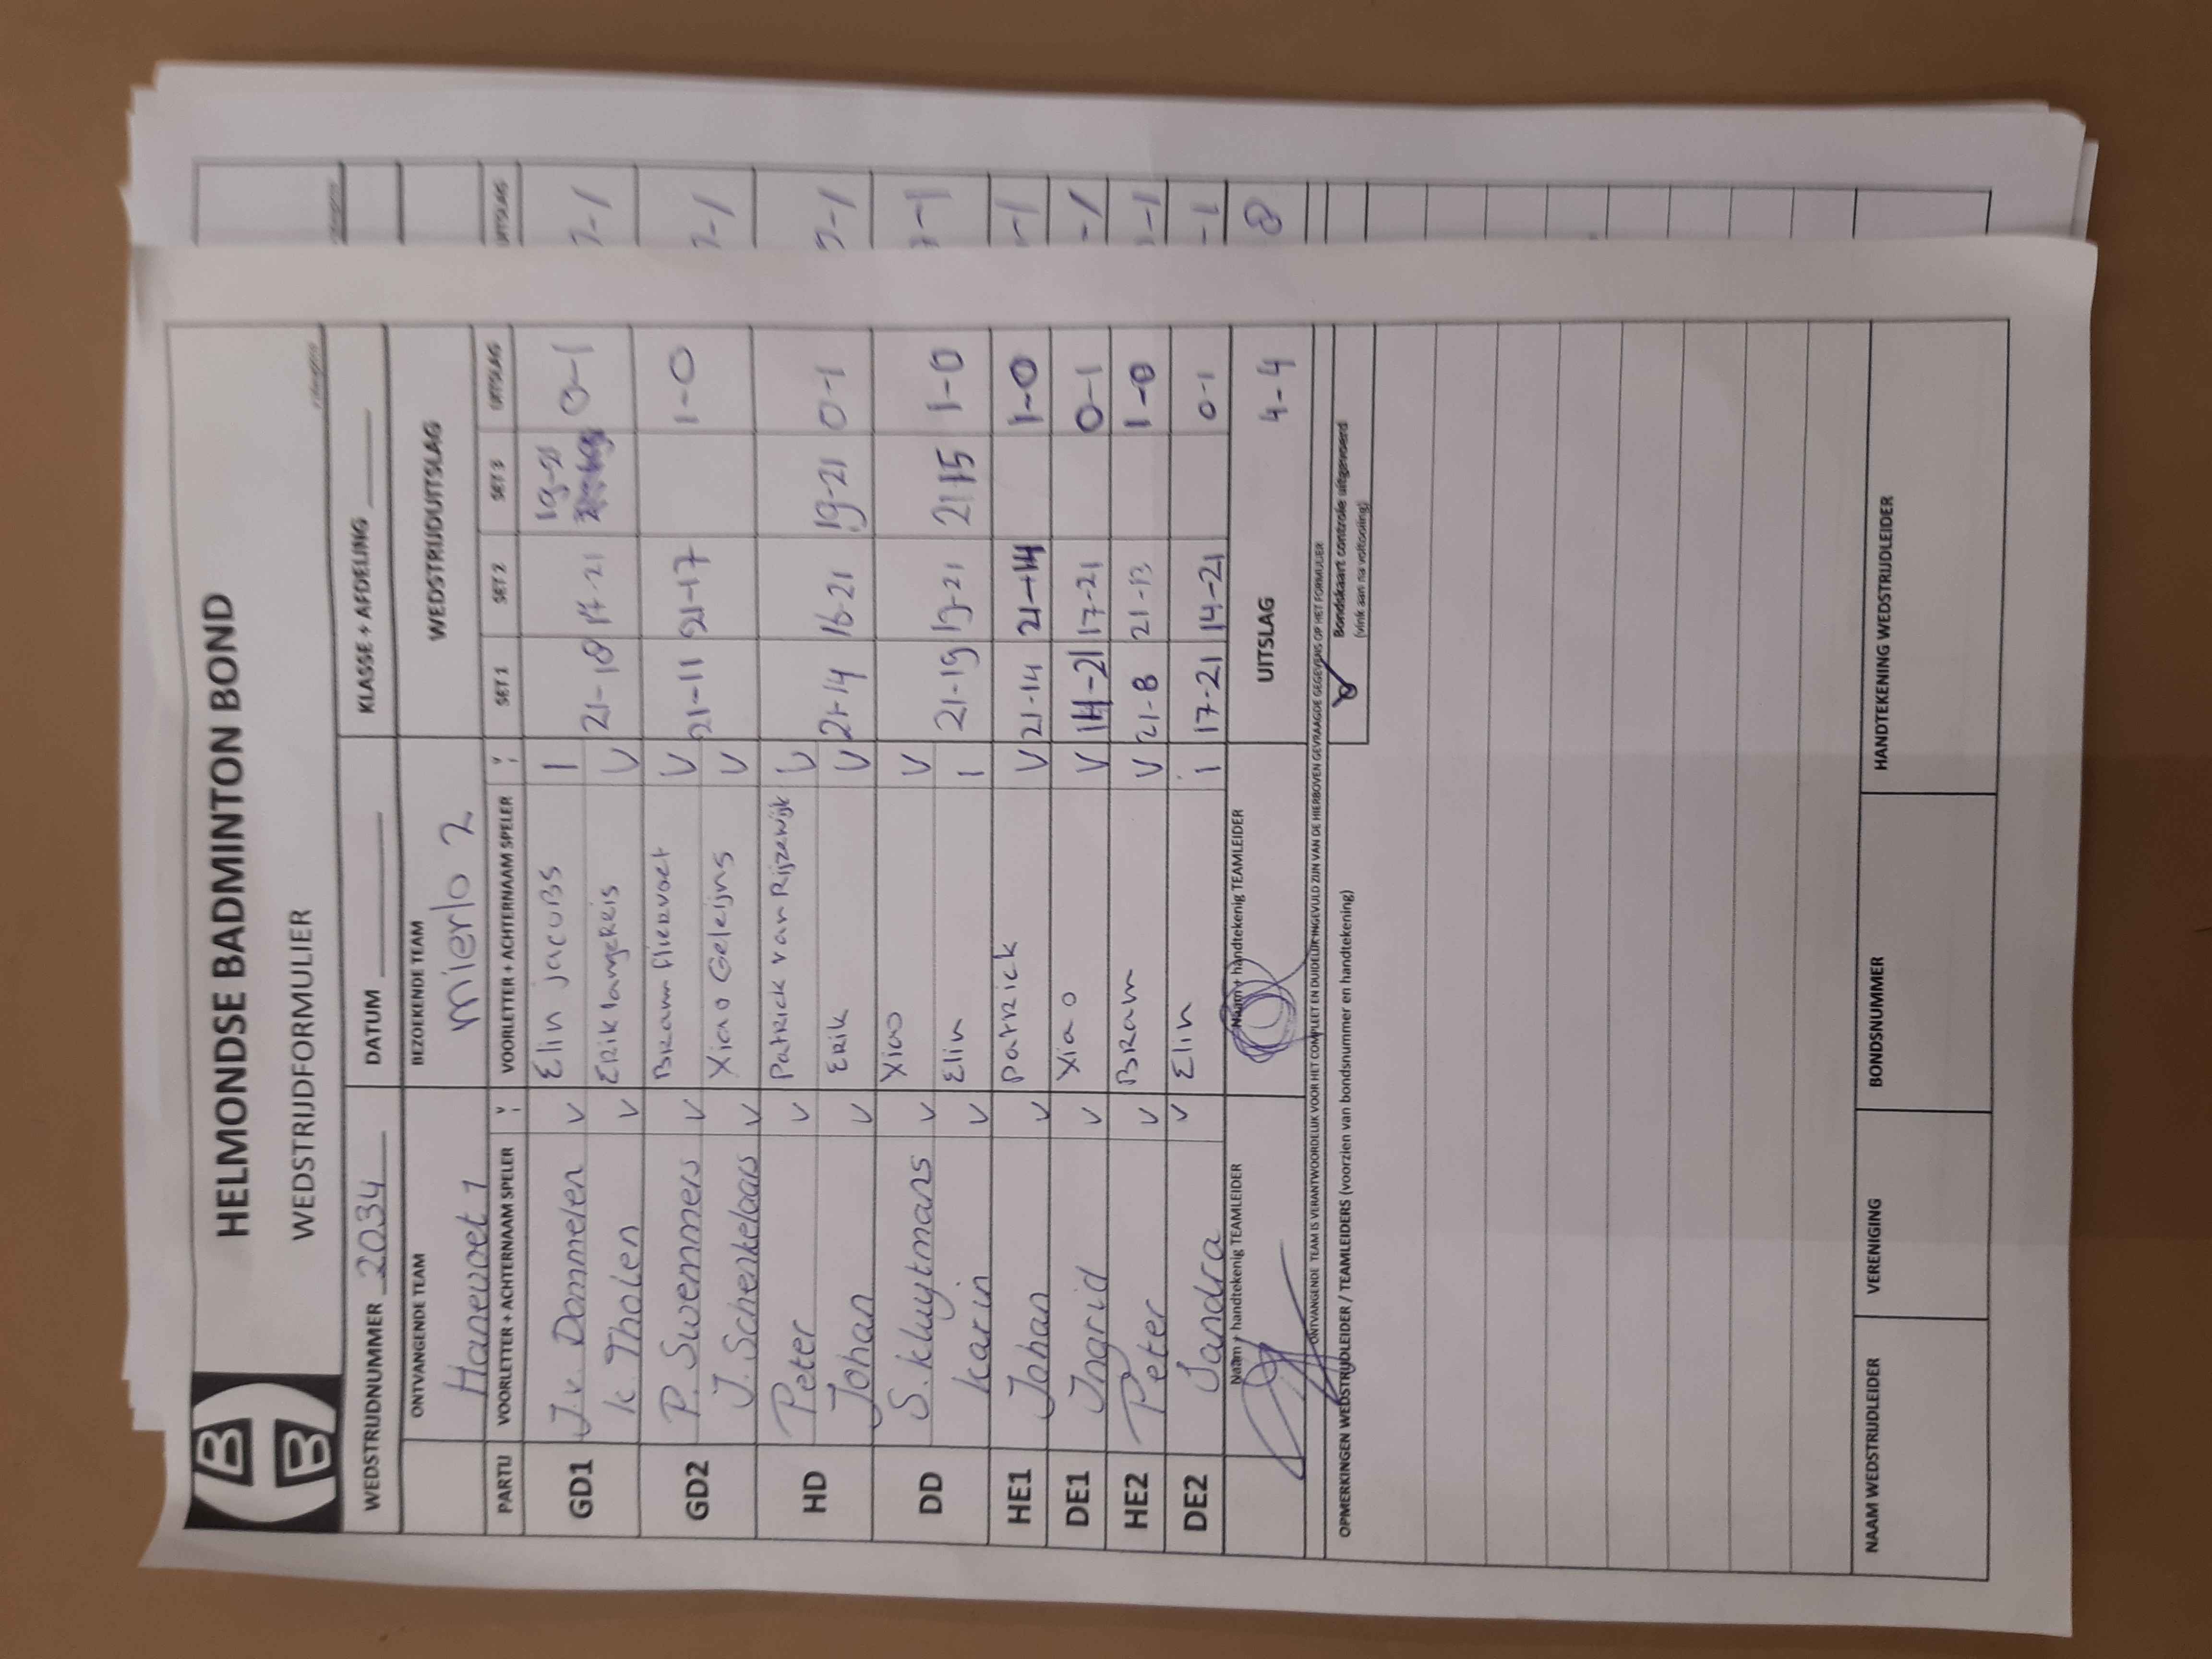 HELMONDSE BADMINTON BOND
WEDSTRIJDFORMULIER
WEDSTRIJDNUMMER 2034 DATUM KLASSE + AFDELING
ONTVANGENDE TEAM BEZOEKENDE TEAM WEDSTRIJDUITSLAG
Hanevoet 1 Mierlo 2
PARTIJ VOORLETTER + ACHTERNAAM SPELER V I VOORLETTER + ACHTERNAAM SPELER V I SET 1 SET 2 SET 3 UITSLAG
GD1 J.v. Dommelen V Elin Jacobs I 19-21
K Tholen V Erik Langereis V 21-18 17-21 0-1
GD2 P. Swemmers V Bram Flievoet V 21-11 21-17 1-0
J. Schenkelaars V Xiao Geleijns V
HD Peter V Patrick van Rijzewijk V
Johan V Erik V 21-14 16-21 19-21 0-1
DD S. Kluytmans V Xiao V
Karin V Elin I 21-19 19-21 21-15 1-0
HE1 Johan V Patrick V 21-14 21-14 1-0
DE1 Ingrid V Xiao V 14-21 17-21 0-1
HE2 Peter V Bram V 21-8 21-13 1-0
DE2 Sandra V Elin i 17-21 14-21 0-1
Naam + handtekenig TEAMLEIDER Naam + handtekenig TEAMLEIDER UITSLAG 4-4
ONTVANGENDE TEAM IS VERANTWOORDELIJK VOOR HET COMPLEET EN DUIDELIJK INGEVULD ZIJN VAN DE HIERBOVEN GEVRAAGDE GEGEVENS OP HET FORMULIER
Bondskaart controle uitgevoerd
(vink aan na voltooiing)
OPMERKINGEN WEDSTRIJDLEIDER / TEAMLEIDERS (voorzien van bondsnummer en handtekening)
NAAM WEDSTRIJDLEIDER VERENIGING BONDSNUMMER HANDTEKENING WEDSTRIJDLEIDER
UITSLAG
-1
-1
-1
-1
-1
-1
-1
-1
8